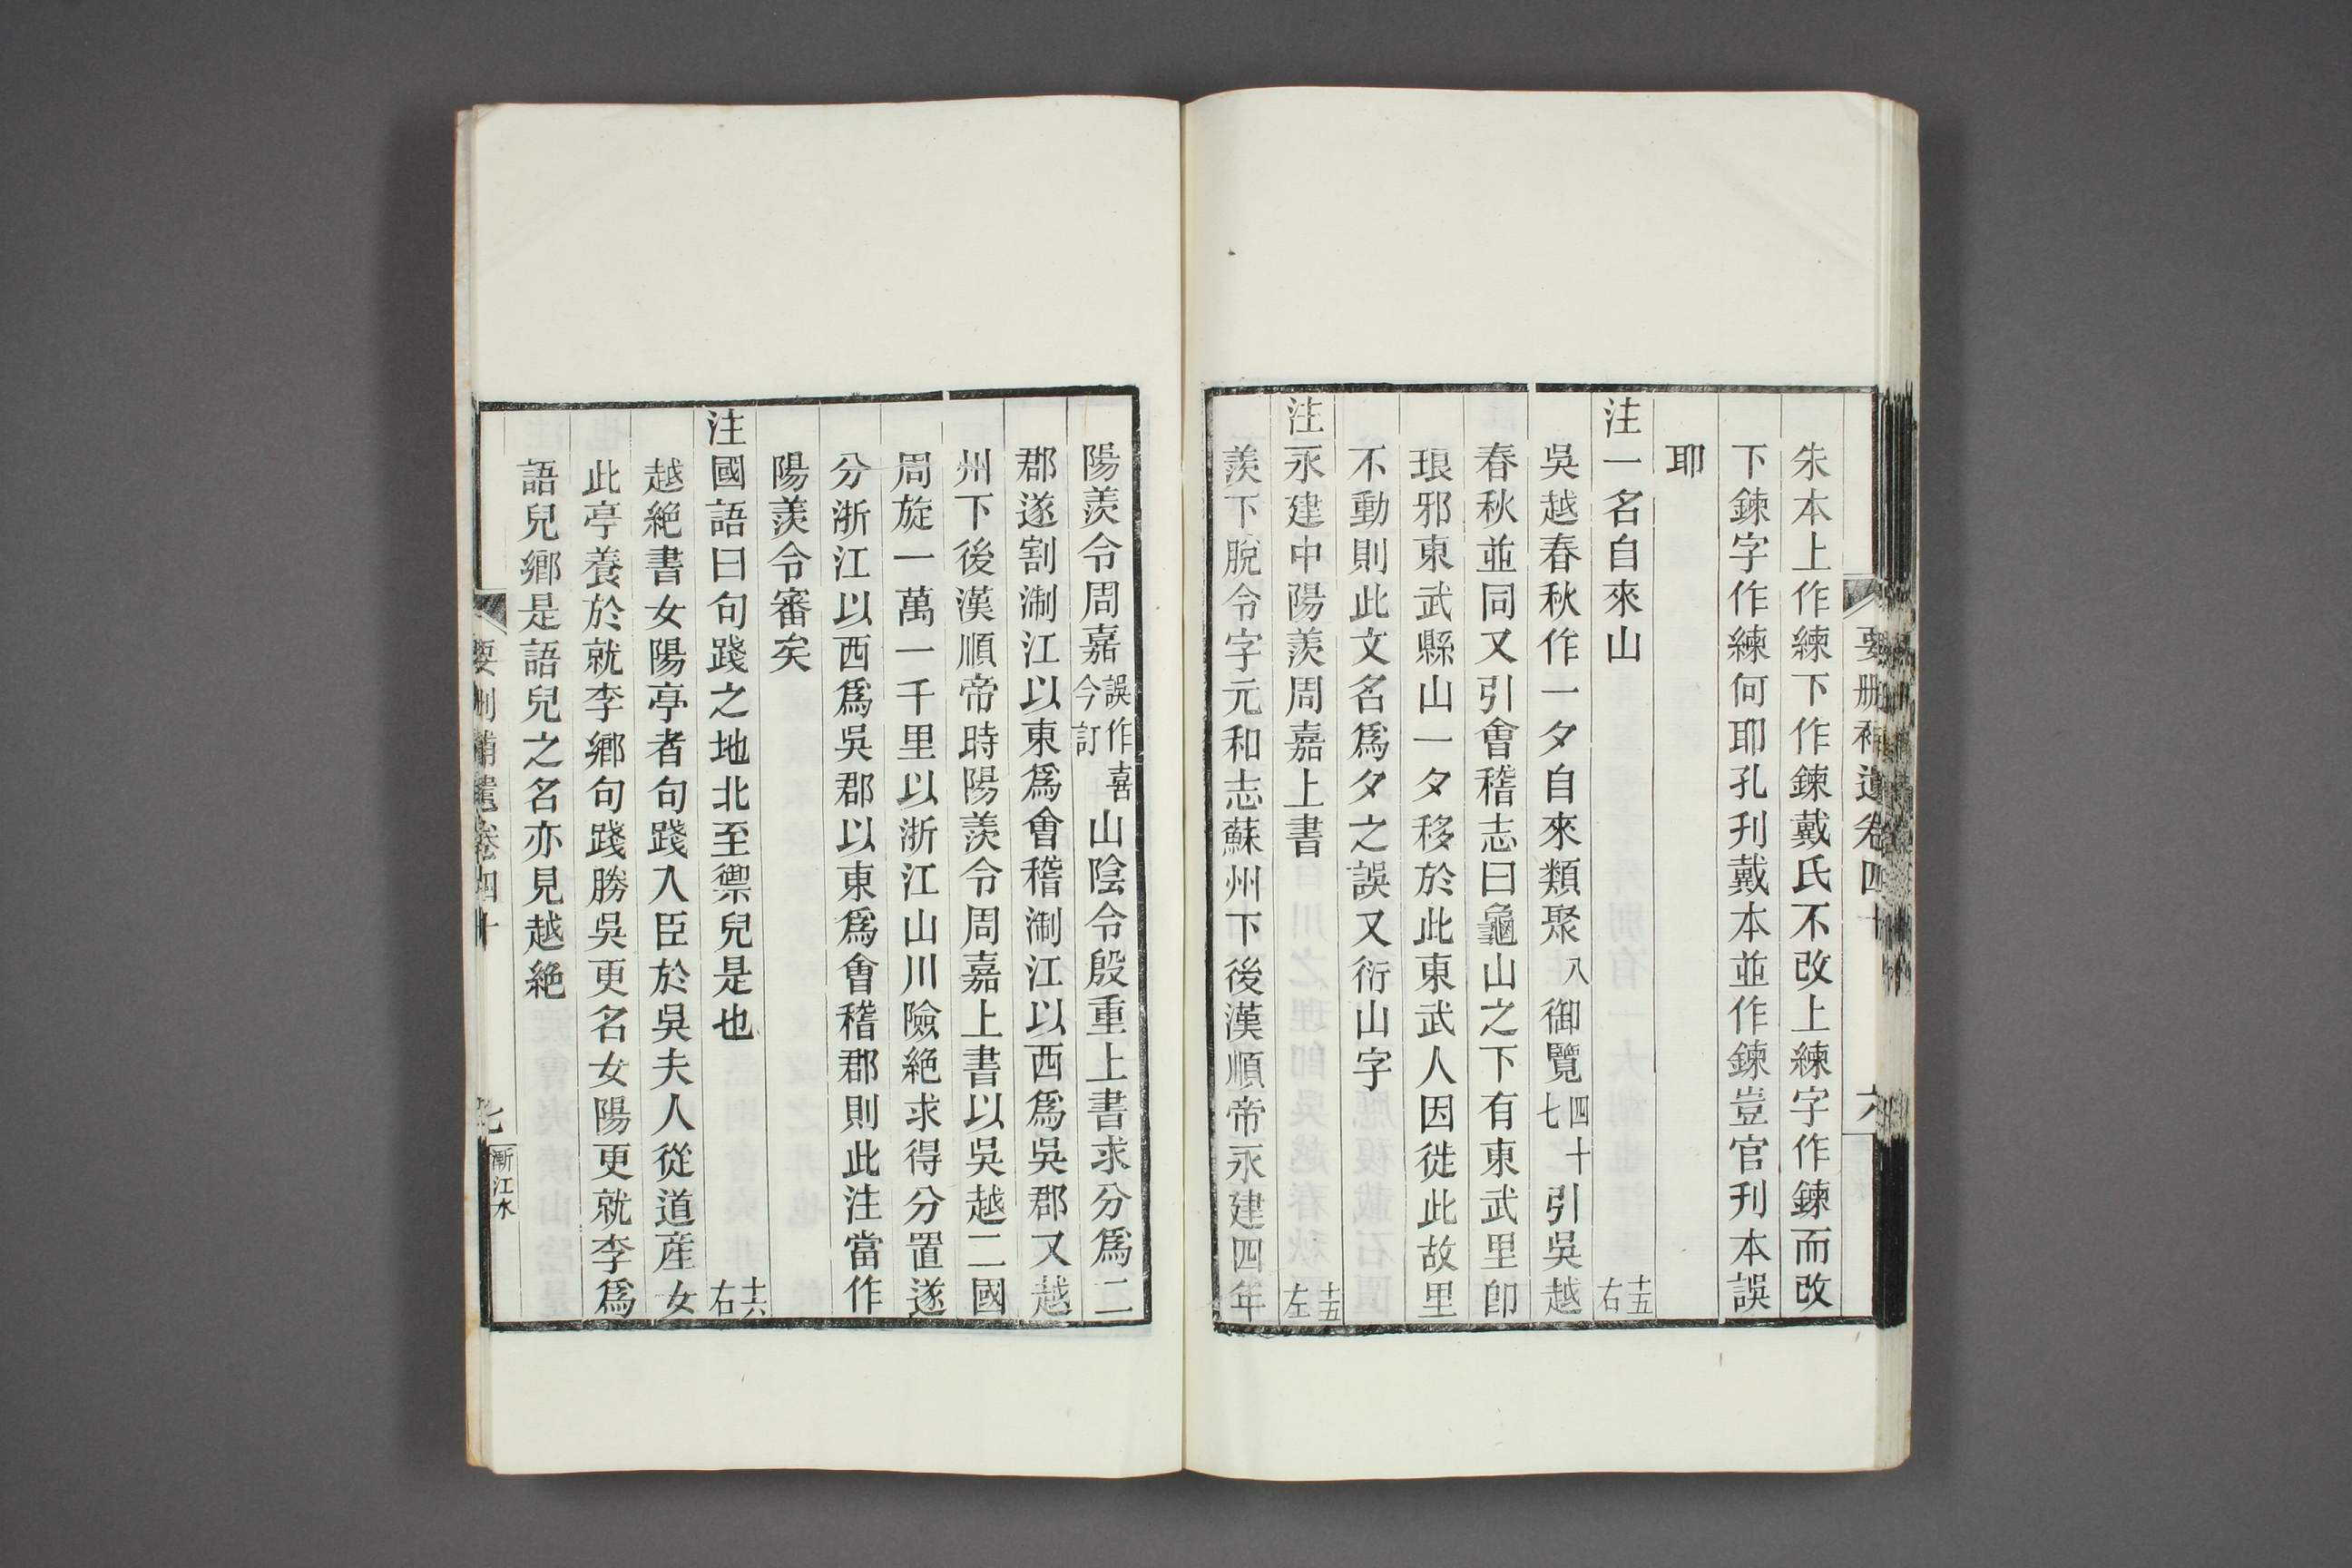 要刪補遺卷四十
六
朱本上作練下作鍊戴氏不改上練字作鍊而改
下鍊字作練何耶孔刋戴本並作鍊豈官刋本誤
耶
注一名自來山 十五右
吳越春秋作一夕自來類聚八御覽四十七引吳越
春秋並同又引會稽志曰龜山之下有東武里卽
琅邪東武縣山一夕移於此東武人因徙此故里
不動則此文名爲夕之誤又衍山字
注永建中陽羨周嘉上書 十五左
羨下脫令字元和志蘇州下後漢順帝永建四年
陽羨令周嘉誤作喜今訂山陰令殷重上書求分爲二
郡遂割淛江以東爲會稽淛江以西爲吳郡又越
州下後漢順帝時陽羨令周嘉上書以吳越二國
周旋一萬一千里以浙江山川險絶求得分置遂
分浙江以西爲吳郡以東爲會稽郡則此注當作
陽羨令審矣
注國語曰句踐之地北至禦兒是也 十六右
越絶書女陽亭者句踐入臣於吳夫人從道産女
此亭養於就李鄉句踐勝吳更名女陽更就李爲
語兒鄉是語兒之名亦見越絶
要刪補遺卷四十
七
漸江水